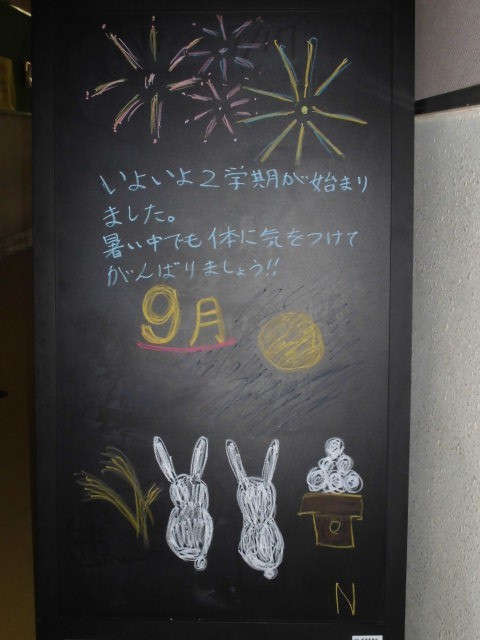 いよいよ2学期が始まり
ました。
暑い中でも体に気をつけて
がんばりましょう!!
9月
N